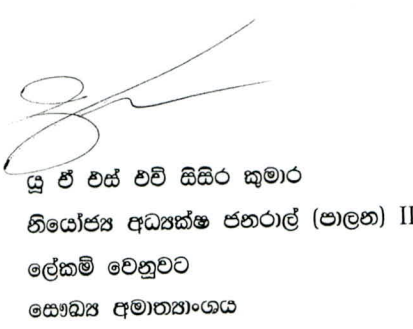 යූ ඒ එස් එච් සිසිර කුමාර
නියෝජ්‍ය අධ්‍යක්ෂ ජනරාල් (පාලන) II
ලේකම් වෙනුවට
සෞඛ්‍ය අමාත්‍යාංශය